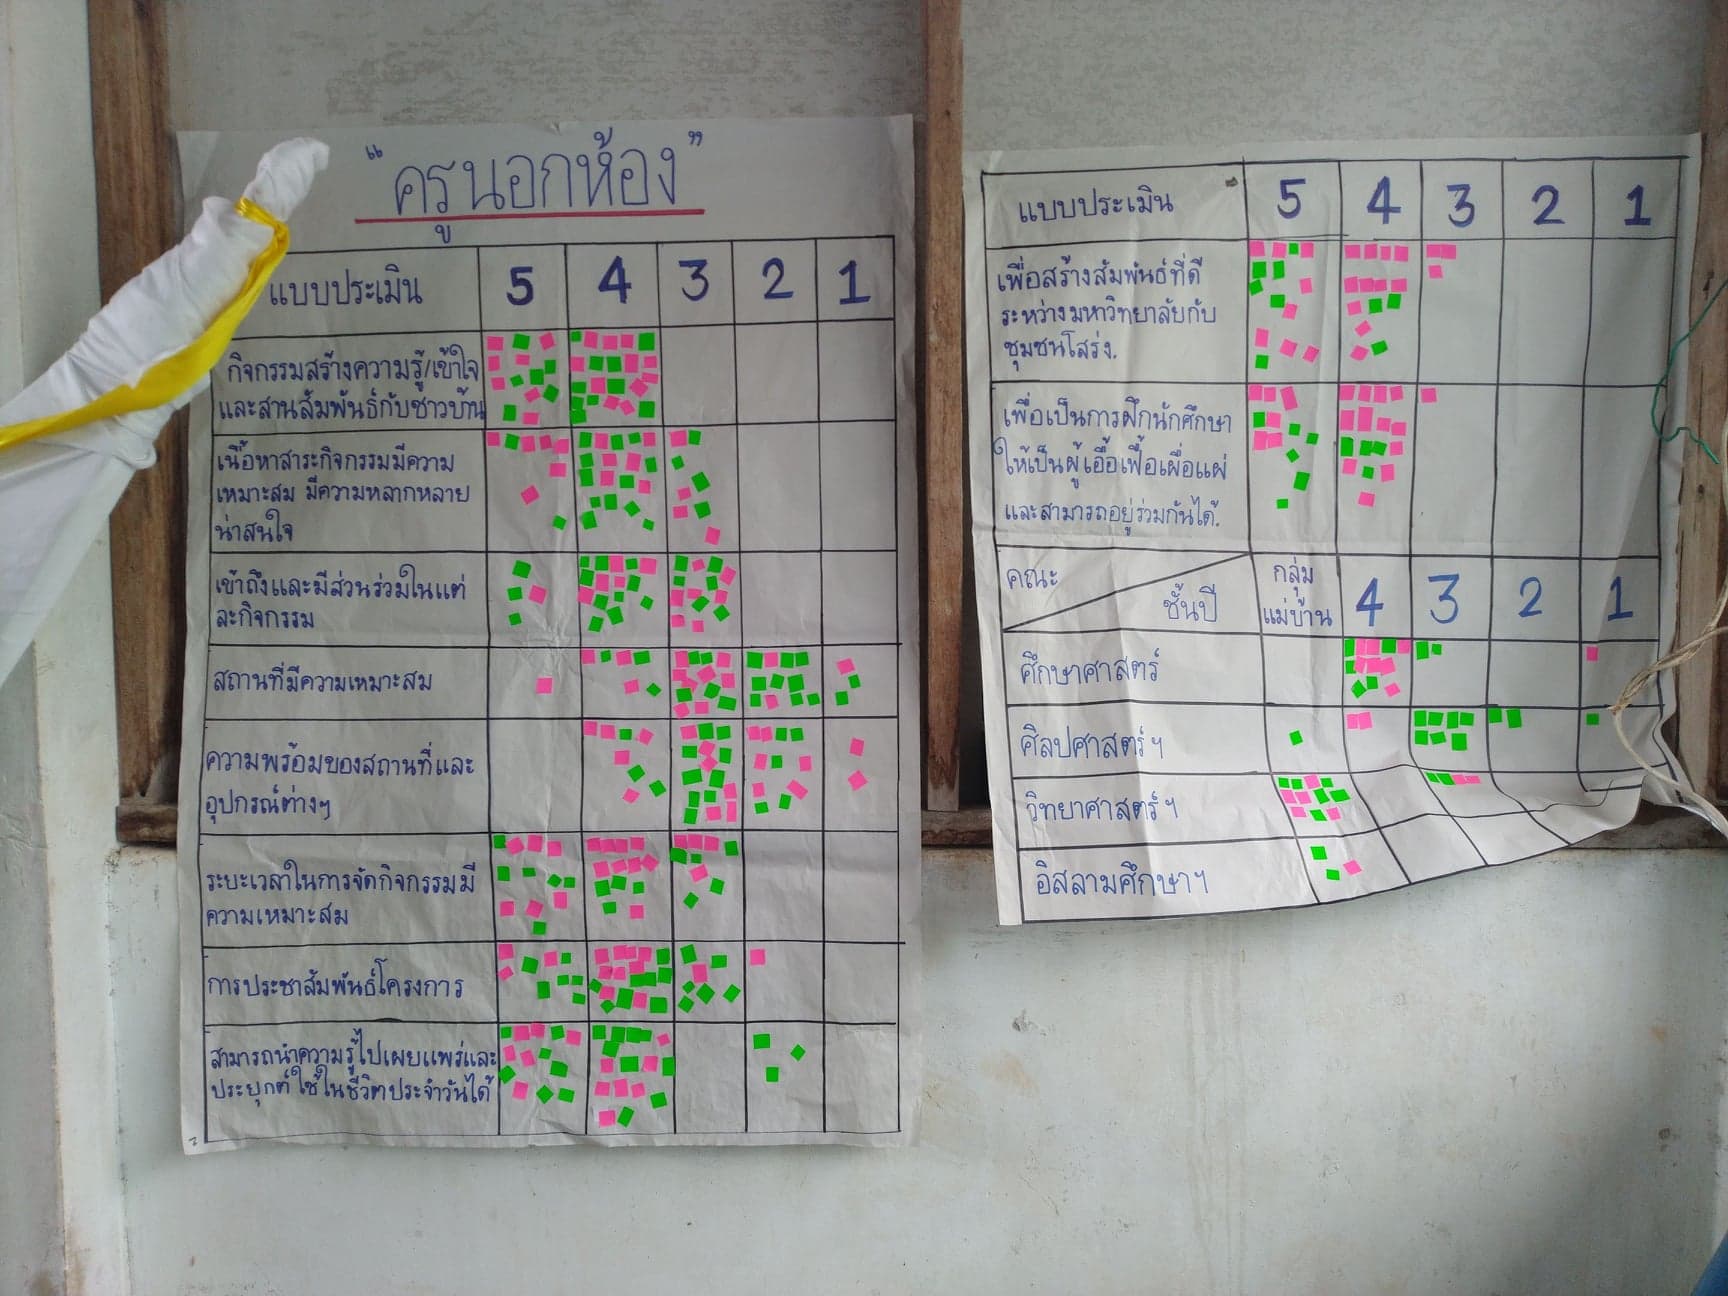 "ครูนอกห้อง"
แบบประเมิน 5 4 3 2 1
กิจกรรมสร้างความรู้/เข้าใจ
และสานสัมพันธ์กับชาวบ้าน
เนื้อหาสาระกิจกรรมมีความ
เหมาะสม มีความหลากหลาย
น่าสนใจ
เข้าถึงและมีส่วนร่วมในแต่
ละกิจกรรม
สถานที่มีความเหมาะสม
ความพร้อมของสถานที่และ
อุปกรณ์ต่างๆ
ระยะเวลาในการจัดกิจกรรมมี
ความเหมาะสม
การประชาสัมพันธ์โครงการ
สามารถนำความรู้ไปเผยแพร่และ
ประยุกต์ใช้ในชีวิตประจำวันได้
แบบประเมิน 5 4 3 2 1
เพื่อสร้างสัมพันธ์ที่ดี
ระหว่างมหาวิทยาลัยกับ
ชุมชนโสร่ง.
เพื่อเป็นการฝึกนักศึกษา
ให้เป็นผู้เอื้อเฟื้อเผื่อแผ่
และสามารถอยู่ร่วมกันได้.
คณะ ชั้นปี กลุ่ม
แม่บ้าน 4 3 2 1
ศึกษาศาสตร์
ศิลปศาสตร์ฯ
วิทยาศาสตร์ฯ
อิสลามศึกษาฯ